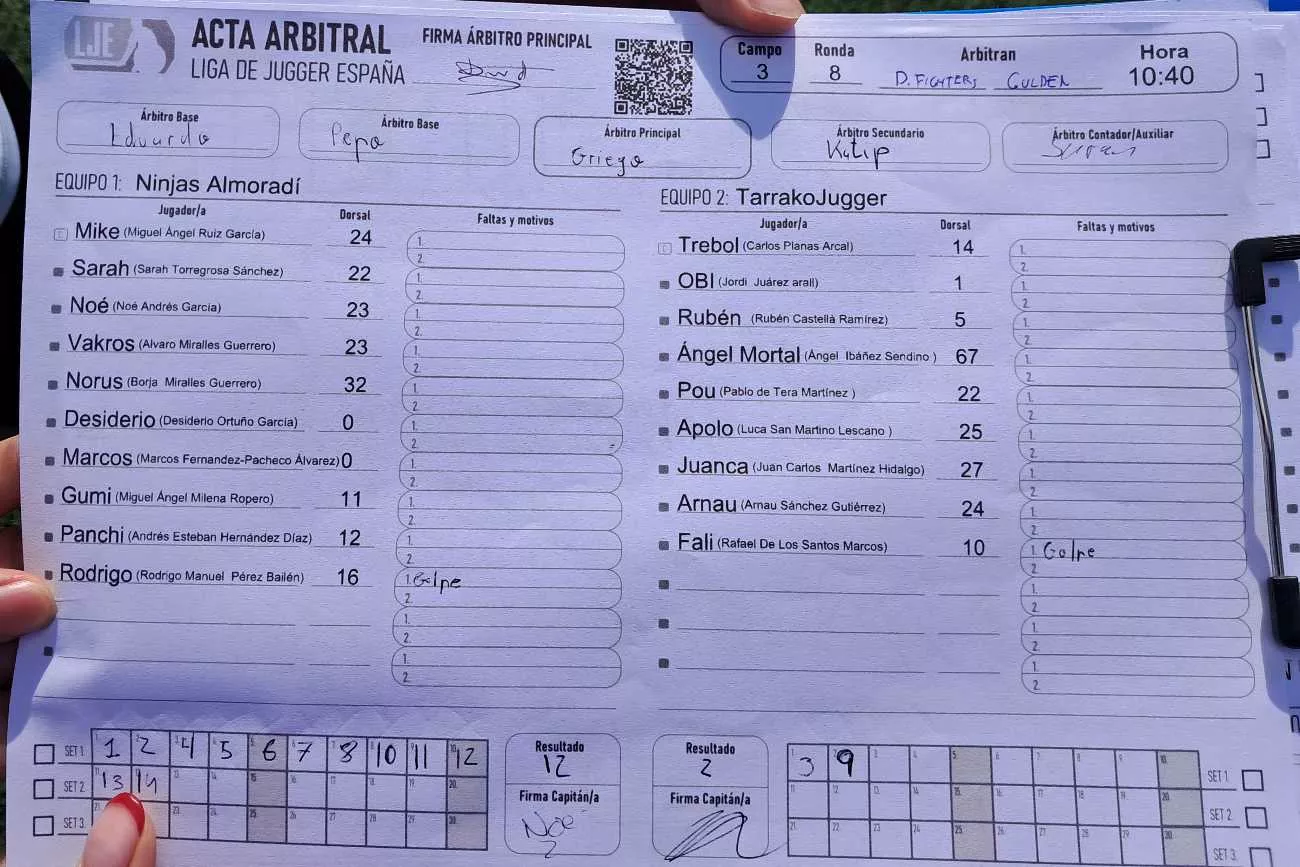 LJE
ACTA ARBITRAL
LIGA DE JUGGER ESPAÑA
FIRMA ÁRBITRO PRINCIPAL
Campo Ronda Arbitran Hora
3 8 D. FIGHTERS GULDEN 10:40
Árbitro Base
Eduardo
Árbitro Base
Pepo
Árbitro Principal
Griego
Árbitro Secundario
Kutip
Árbitro Contador/Auxiliar
EQUIPO 1: Ninjas Almoradí
Jugador/a Dorsal Faltas y motivos
Mike (Miguel Ángel Ruiz García) 24 1. 2.
Sarah (Sarah Torregrosa Sánchez) 22 1. 2.
Noé (Noé Andrés García) 23 1. 2.
Vakros (Alvaro Miralles Guerrero) 23 1. 2.
Norus (Borja Miralles Guerrero) 32 1. 2.
Desiderio (Desiderio Ortuño García) 0 1. 2.
Marcos (Marcos Fernandez-Pacheco Álvarez) 0 1. 2.
Gumi (Miguel Ángel Milena Ropero) 11 1. 2.
Panchi (Andrés Esteban Hernández Díaz) 12 1. 2.
Rodrigo (Rodrigo Manuel Pérez Bailén) 16 1. Golpe 2.
1. 2.
1. 2.
EQUIPO 2: TarrakoJugger
Jugador/a Dorsal Faltas y motivos
Trebol (Carlos Planas Arcal) 14 1. 2.
OBI (Jordi Juárez arall) 1 1. 2.
Rubén (Rubén Castellà Ramírez) 5 1. 2.
Ángel Mortal (Ángel Ibáñez Sendino ) 67 1. 2.
Pou (Pablo de Tera Martínez ) 22 1. 2.
Apolo (Luca San Martino Lescano ) 25 1. 2.
Juanca (Juan Carlos Martínez Hidalgo) 27 1. 2.
Arnau (Arnau Sánchez Gutiérrez) 24 1. 2.
Fali (Rafael De Los Santos Marcos) 10 1. Golpe 2.
1. 2.
1. 2.
1. 2.
SET 1 1 2 4 5 6 7 8 10 11 12
SET 2 13 14
SET 3
Resultado
12
Firma Capitán/a
Noé
Resultado
2
Firma Capitán/a
3 9 SET 1
SET 2
SET 3